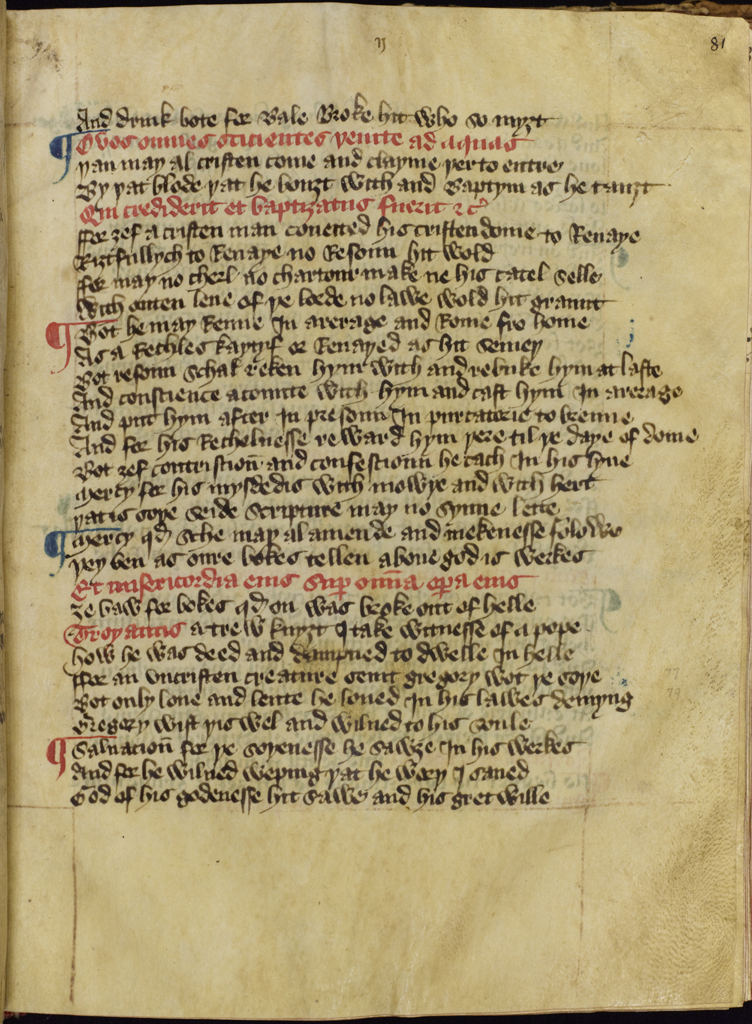 11
81
And drink bote for bale broke hit who so myȝt
O vos omnes sicientes venite ad aquas
þan may al cristen come and clayme þerto entre
By þat blode þat he bouȝt with and baptym as he tauȝt
Qui crediderit et baptizatus fuerit &c
ffor ȝef a cristen man coueited his cristendome to Renaye
Riȝtfullych to Renaye no Resoun hit wold
ffor may no cherl no chartour make ne his catel selle
With outen leue of þe lorde no lawe wold hit graunt
Bot he may Renne In arerage and Rome fro home
As a Rechles kaytyf or Renayed as hit semeþ
Bot resoun schal reken hym with and rebuke hym at laste
And conscience acounte with hym and cast hym In arerage
And put hym after In presoun In purcatorie to brenne
And for his Rechelnesse reward hym þere til þe daye of dome
Bot ȝef contristion and confestioun he cach In his lyue
Mercy for his mysdedis with mowþe and with hert
þat is soþe seide scripture may no synne lette
Mercy qd sche may al amende and mekenesse folowe
þey ben as oure bokes tellen aboue god is werkes
Et misericordia eius super omnia opera eius
ȝe baw for bokes qd on was broke out of helle
Troyanus a trew knyȝt I take witnesse of a pope
how he was deed and dampned to dwelle In helle
ffor an uncristen creature seint gregory wot þe soþe
Bot only loue and leute he loued In his lawes demyng
Gregory wist þis wel and wilned to his soule
Saluacioun for þe soþenesse he sawȝe In his werkes
And for he wilned weping þat he wery I saued
God of his godenesse hit sawe and his gret wille